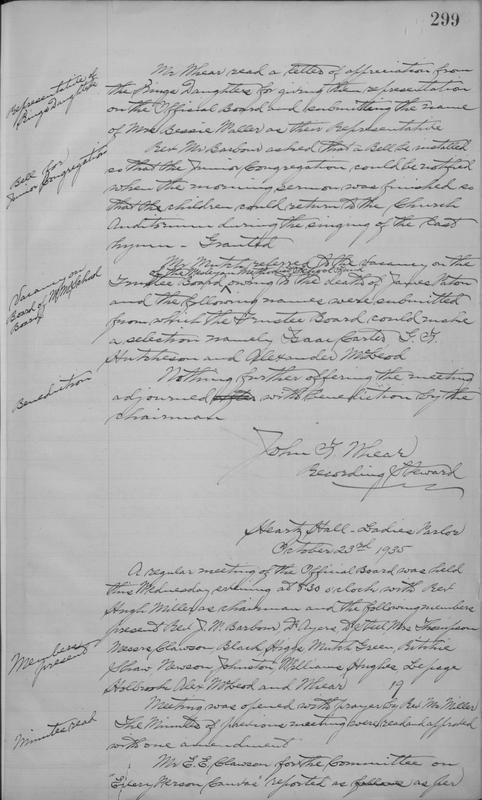 299
Representative of
Kings Daughters
Mr Whear read a letter of appreciation from
the Kings Daughters for giving them representation
on the Official Board and submitting the name
of Mrs Bessie Waller as their Representative
Bell for
Junior Congregation
Rev Mr Barbour asked that a Bell be installed
so that the Junior Congregation could be notified
when the morning sermon was finished so
that the children could return to the Church
Auditorium during the singing of the last
hymn - Granted
Vacancy on
Board of W. M. School
Board
Mr Mutch referred to the vacancy on the
of the Wesleyan Methodist School Fund
Trustee Board owing to the death of James Paton
and the following names were submitted
from which the Trustee Board could make
a selection namely Isaac Carter
Hutcheson and Alexander McLeod
Benediction
Nothing further offering the meeting
adjourned after with Benediction by the
chairman
John T. Whear
Recording Steward
Heartz Hall - Ladies Parlor
October 23rd 1935
A regular meeting of the Official Board was held
this Wednesday evening at 8.30 o'clock with Rev
Hugh Miller as chairman and the following members
Members
present
present Rev J. W. Barbour Dr Ayers Mrs Thompson
Messrs Clawson Black Higgs Mutch Green Ritchie
Shaw Newson Johnston Williams Hughes Lepage
Holbrook Alex McLeod and Whear 19
Minutes read
Meeting was opened with prayer by Rev Mr Miller
The Minutes of previous meeting were read and approved
with one amendment
Mr E. E. Clawson for the Committee on
"Every Person Canvas" reported as follows as per